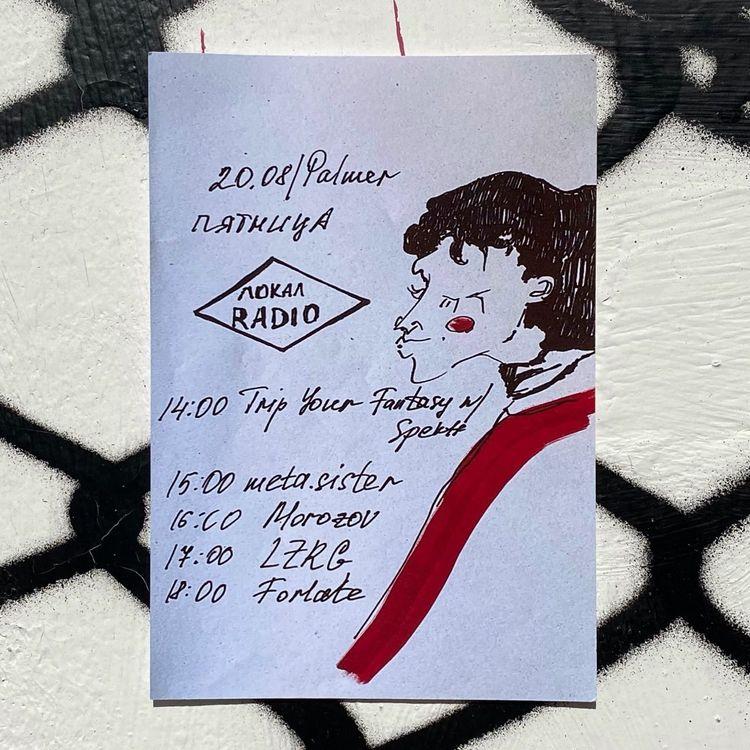 20.08/Palmer
пятница
ЛОКАЛ
RADIO
14:00 Trip Your Fantasy w/
Spektr
15:00 meta.sister
16:00 Morozov
17:00 LZRG
18:00 Forlate